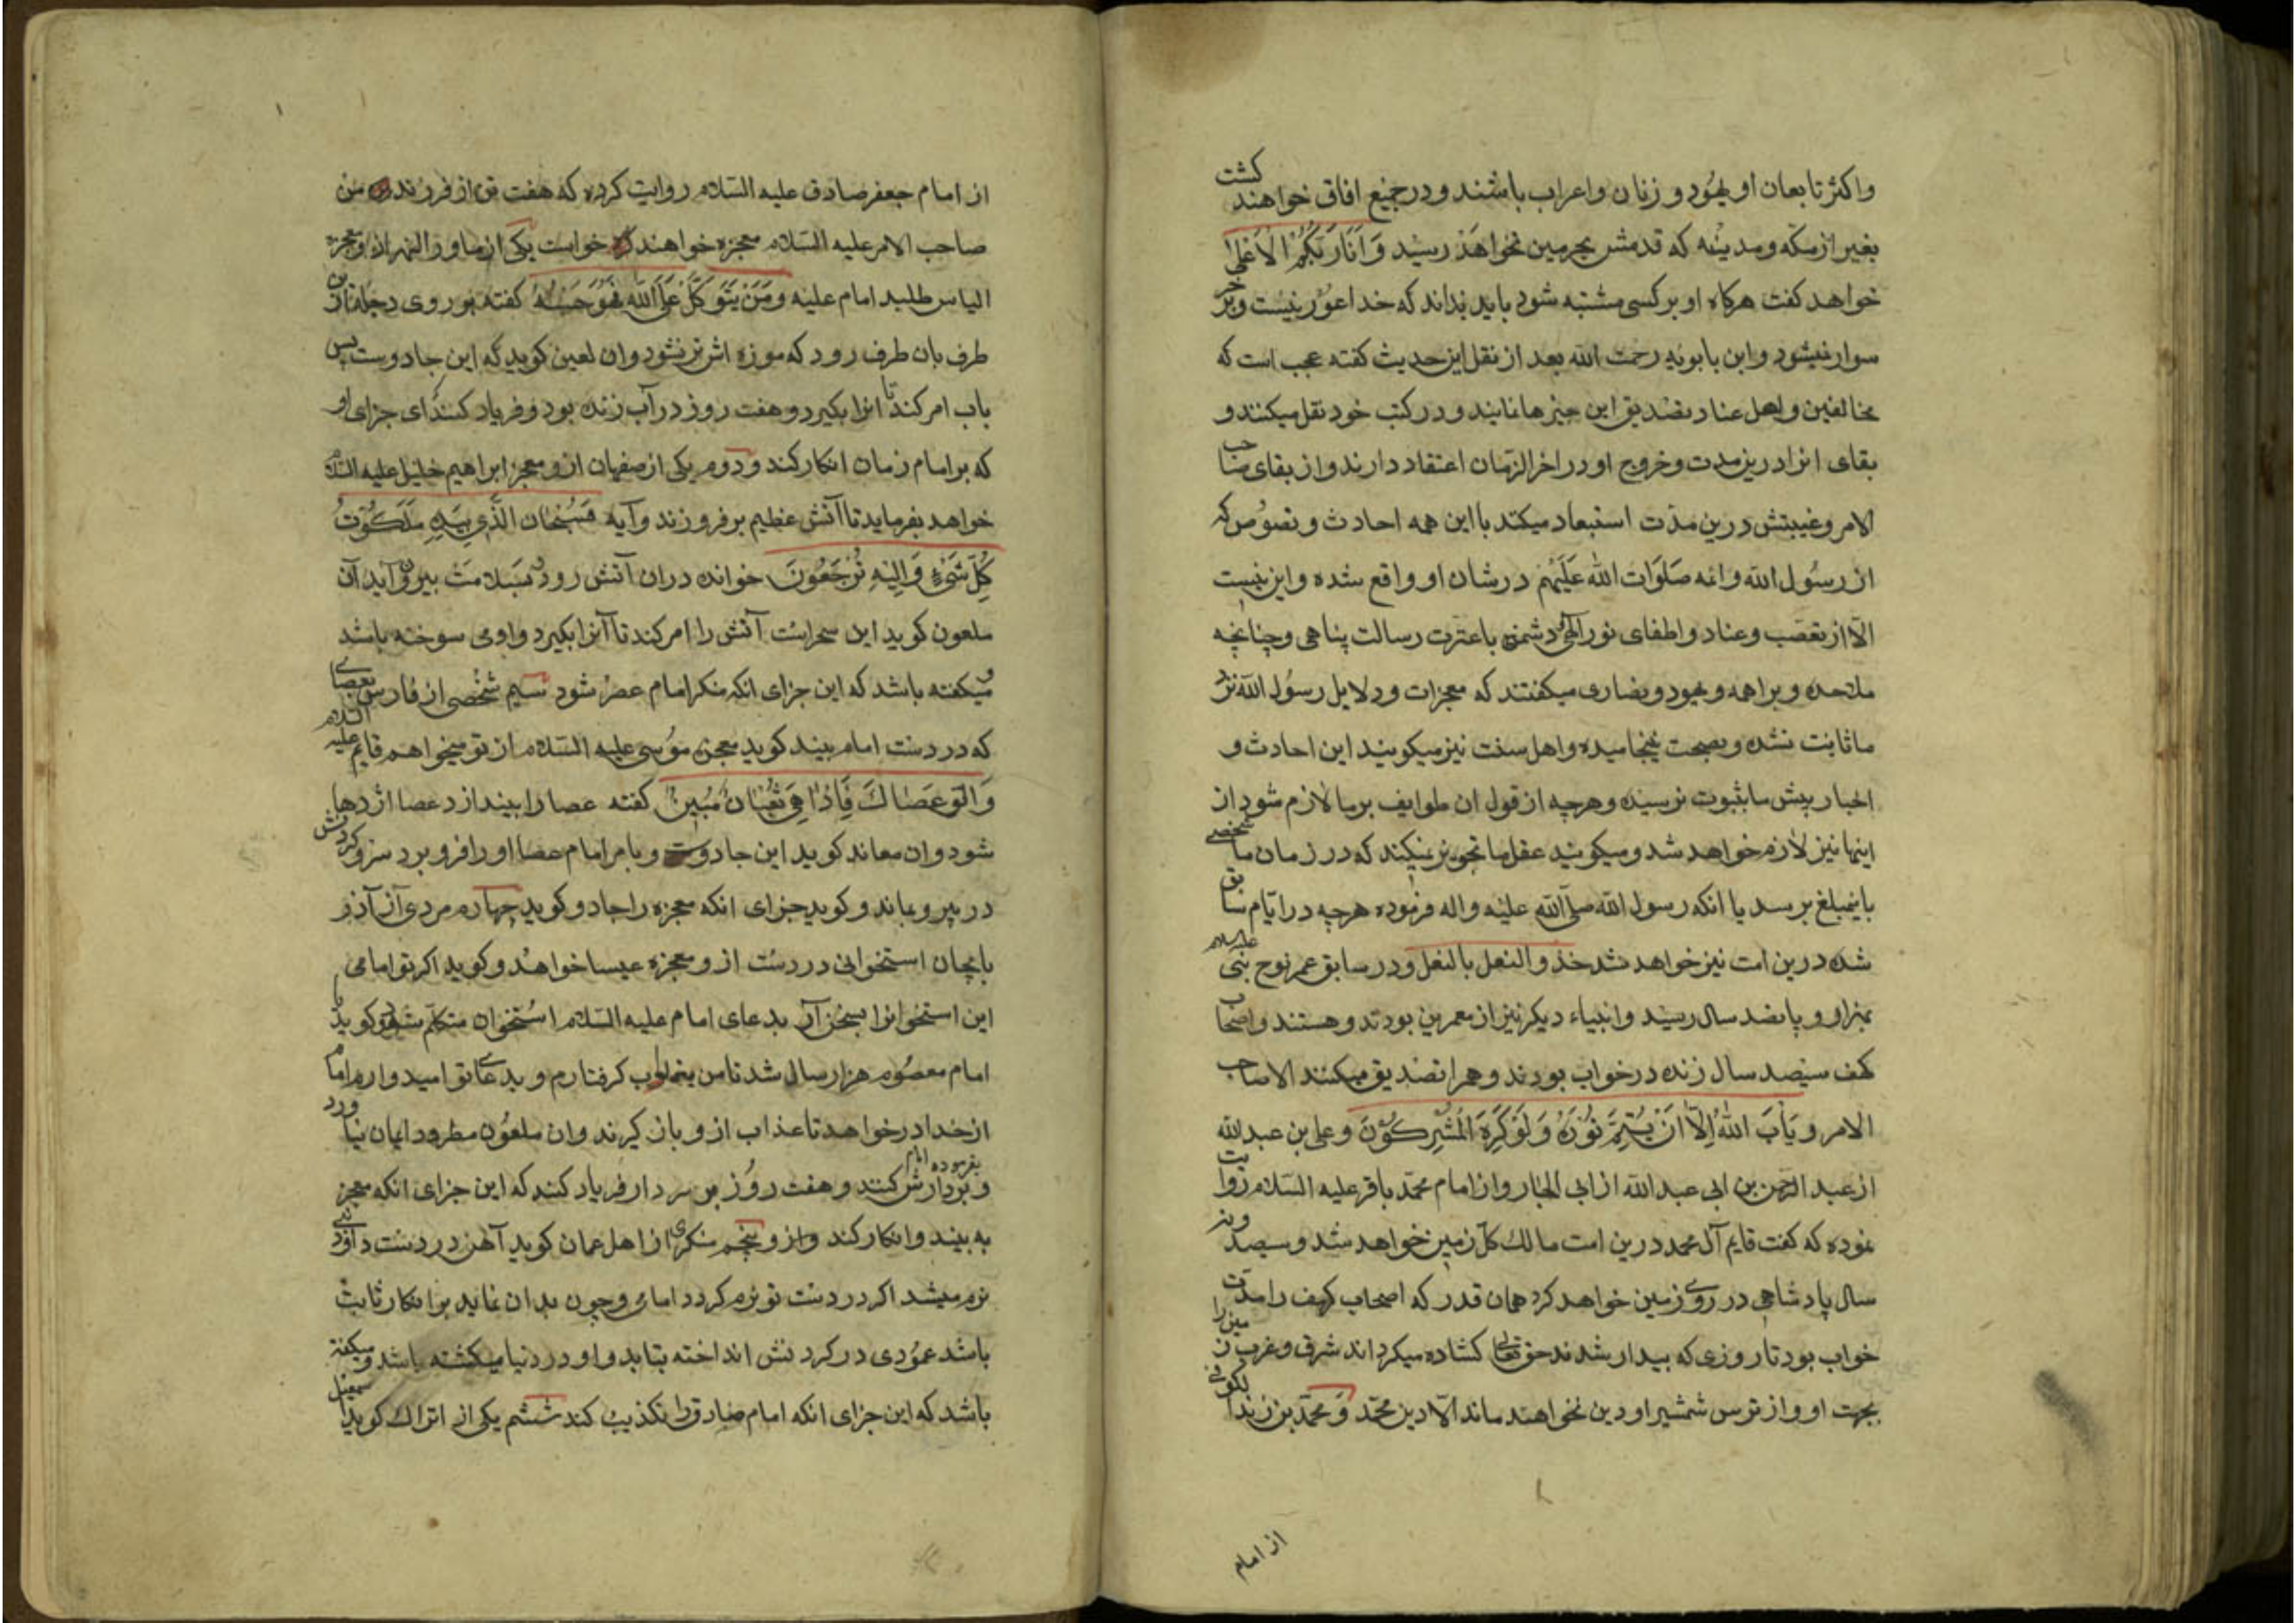 واکثر تابعان او یهود و زنان واعراب باشند و در جمیع افاق خواهند کشت
بغیر از مکه و مدینه که قدمش بحرمین نخواهد رسید وَاَنَا رَبُّکُمُ الْاَعْلیٰ
خواهد کفت هرکاه او بر کسی مشتبه شود باید بداند که خدا اعور نیست و بر خر
سوار نمیشود و ابن بابویه رحمت الله بعد از نقل این حدیث کفته عجب است که
مخالفین و اهل عناد تصدیق این چیزها نمایند و در کتب خود نقل میکنند و
بقای انرا درین مدت و خروج او در اخر الزمان اعتقاد دارند و از بقای صاحب
الامر و غیبتش درین مدت استبعاد میکند با این همه احادث و نصوص که
از رسول الله و ائمه صَلَوَات اللّٰه عَلَیْهِم در شان او واقع شده و این نیست
الّا از تعصب و عناد و اطفای نور الهی و دشمنی با عترت رسالت پناهی و چنانچه
ملاحده و براهمه و یهود و نصاری میکفتند که معجزات و دلایل رسول الله نزد
ما ثابت نشده و بصحت نینجامیده و اهل سنت نیز میکویند این احادث و
اخبار پیش ما بثبوت نرسیده و هرچه از قول ان طوایف بر ما لازم شود از
اینها نیز لازم خواهد شد و میکویند عقل ما تجویز نمیکند که در زمان ما شخصی
باین مبلغ برسد با انکه رسول الله صلّی اللّه علیه واله فرموده هرچه در ایّام سابق
شده درین امت نیز خواهد شد حذو النعل بالنعل و در سابق عمر نوح نبی علیه السلام
بهزار و پانصد سال رسید و انبیاء دیکر نیز از معمرین بودند و هستند و اصحاب
کهف سیصد سال زنده در خواب بودند و همه را تصدیق میکنند الا صاحب
الامر و یَاْبَ اللّٰهُ اِلّا اَنْ یُتِمَّ نُورَهُ وَلَوْ کَرِهَ الْمُشْرِکُونَ و علی بن عبد الله
از عبد الرحمن بن ابی عبد الله از ابی الجارود از امام محمد باقر علیه السلام روایت
نموده که کفت قایم آل محمد درین امت مالک کل زمین خواهد شد و سیصد و نه
سال پادشاهی در روی زمین خواهد کرد همان قدر که اصحاب کهف را مدت
خواب بود تا روزی که بیدار شدند حق تعالی کشاده میکرداند شرق و غرب زمین را
بجهت او و از ترس شمشیر او دین نخواهند ماند الّا دین محمد و محمد بن زند اکوفی
از امام
از امام جعفر صادق علیه السّلام روایت کرده که هفت تن از فرزند من
صاحب الامر علیه السّلام معجزه خواهند خواست یکی از ماور النهر از و معجزه
الیاس طلبد امام علیه وَمَنْ یَتَوَکَّلْ عَلَی اللّٰه فَهُوَ حَسْبُهُ کفته بر روی دجله از این
طرف بان طرف رود که موزه اش تر نشود وان لعین کوید که این جادوست پس
باب امر کند تا انرا بکیرد و هفت روز در آب زنده بود و فریاد کند ای جزای او
که بر امام زمان انکار کند و دوم یکی از صفهان از و معجز ابراهیم خلیل علیه السلام
خواهد بفرماید تا آتش عظیم بر فروزند و آیه فَسُبْحَان الَّذِی بِیَدِهِ مَلَکُوتُ
کُلِّ شَیْءٍ وَاِلَیْهِ تُرْجَعُونَ خوانده دران آتش رود و بسلامت بیرون آید آن
ملعون کوید این سحراست آتش را امر کند تا آنرا بکیرد و او می سوخته باشد
و میکفته باشد که این جزای انکه منکر امام عصر شود سیم شخصی از فارس عصای
که در دست امام بیند کوید معجزه موسی علیه السّلام از تو میخواهم قایم علیه السلام
وَاَلْقِ عَصَاکَ فَاِذَا هِیَ ثُعْبَانٌ مُبِینٌ کفته عصا را بیندازد عصا اژدها
شود وان معاند کوید این جادوست و بامر امام عصا او را فرو برد سر و کردنش
در بیرون بماند و کوید جزای انکه معجزه را جادو کوید چهارم مردی از آذر
بایجان استخوانی در دست از و معجزه عیسا خواهد و کوید اکر تو امامی
این استخوانرا بسخن آر بدعای امام علیه السّلام استخوان متکلم شود و کوید یا
امام معصوم هزار سال شد تا من بعذاب کرفتارم و بدعای تو امیدوارم امام
از خدا درخواهد تا عذاب از و باز کیرند وان ملعون مطرود ایمان نیاورد
بفرموده امام
و بر دارش کنند و هفت روز بر سر دار فریاد کند که این جزای انکه معجز
به بیند و انکار کند و از و پنجم منکری از اهل عمان کوید آهن در دست داود
نرم میشد اکر در دست تو نرم کردد امامی و چون بدان نماید بر انکار ثابت
باشد عمودی در کردنش انداخته بتابد و او در دنیا میکشته باشد و میکفته
باشد که این جزای انکه امام صادق را تکذیب کند ششم یکی از اتراک کوید اسمعیل